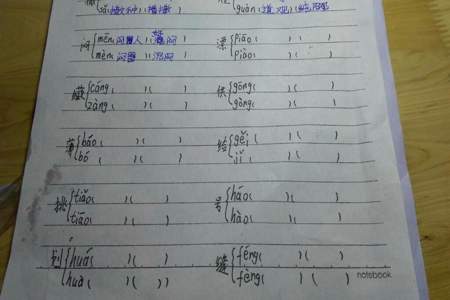 sǎ(撒种)(播撒) guàn(道观)(
闷{mēn(闷人)( mèn( 漂{piāo( )( ) piào( )( )
藏{cáng( )( ) zàng( )( ) 供{gōng( )( ) gòng( )( )
薄{báo( )( ) bó( )( ) 给{gěi( )( ) jǐ( )( )
挑{tiāo( )( ) tiǎo( )( ) 号{háo( )( ) hào( )( )
划{huá( )( ) huà( )( ) 缝{féng( )( ) fèng( )( )
notebook